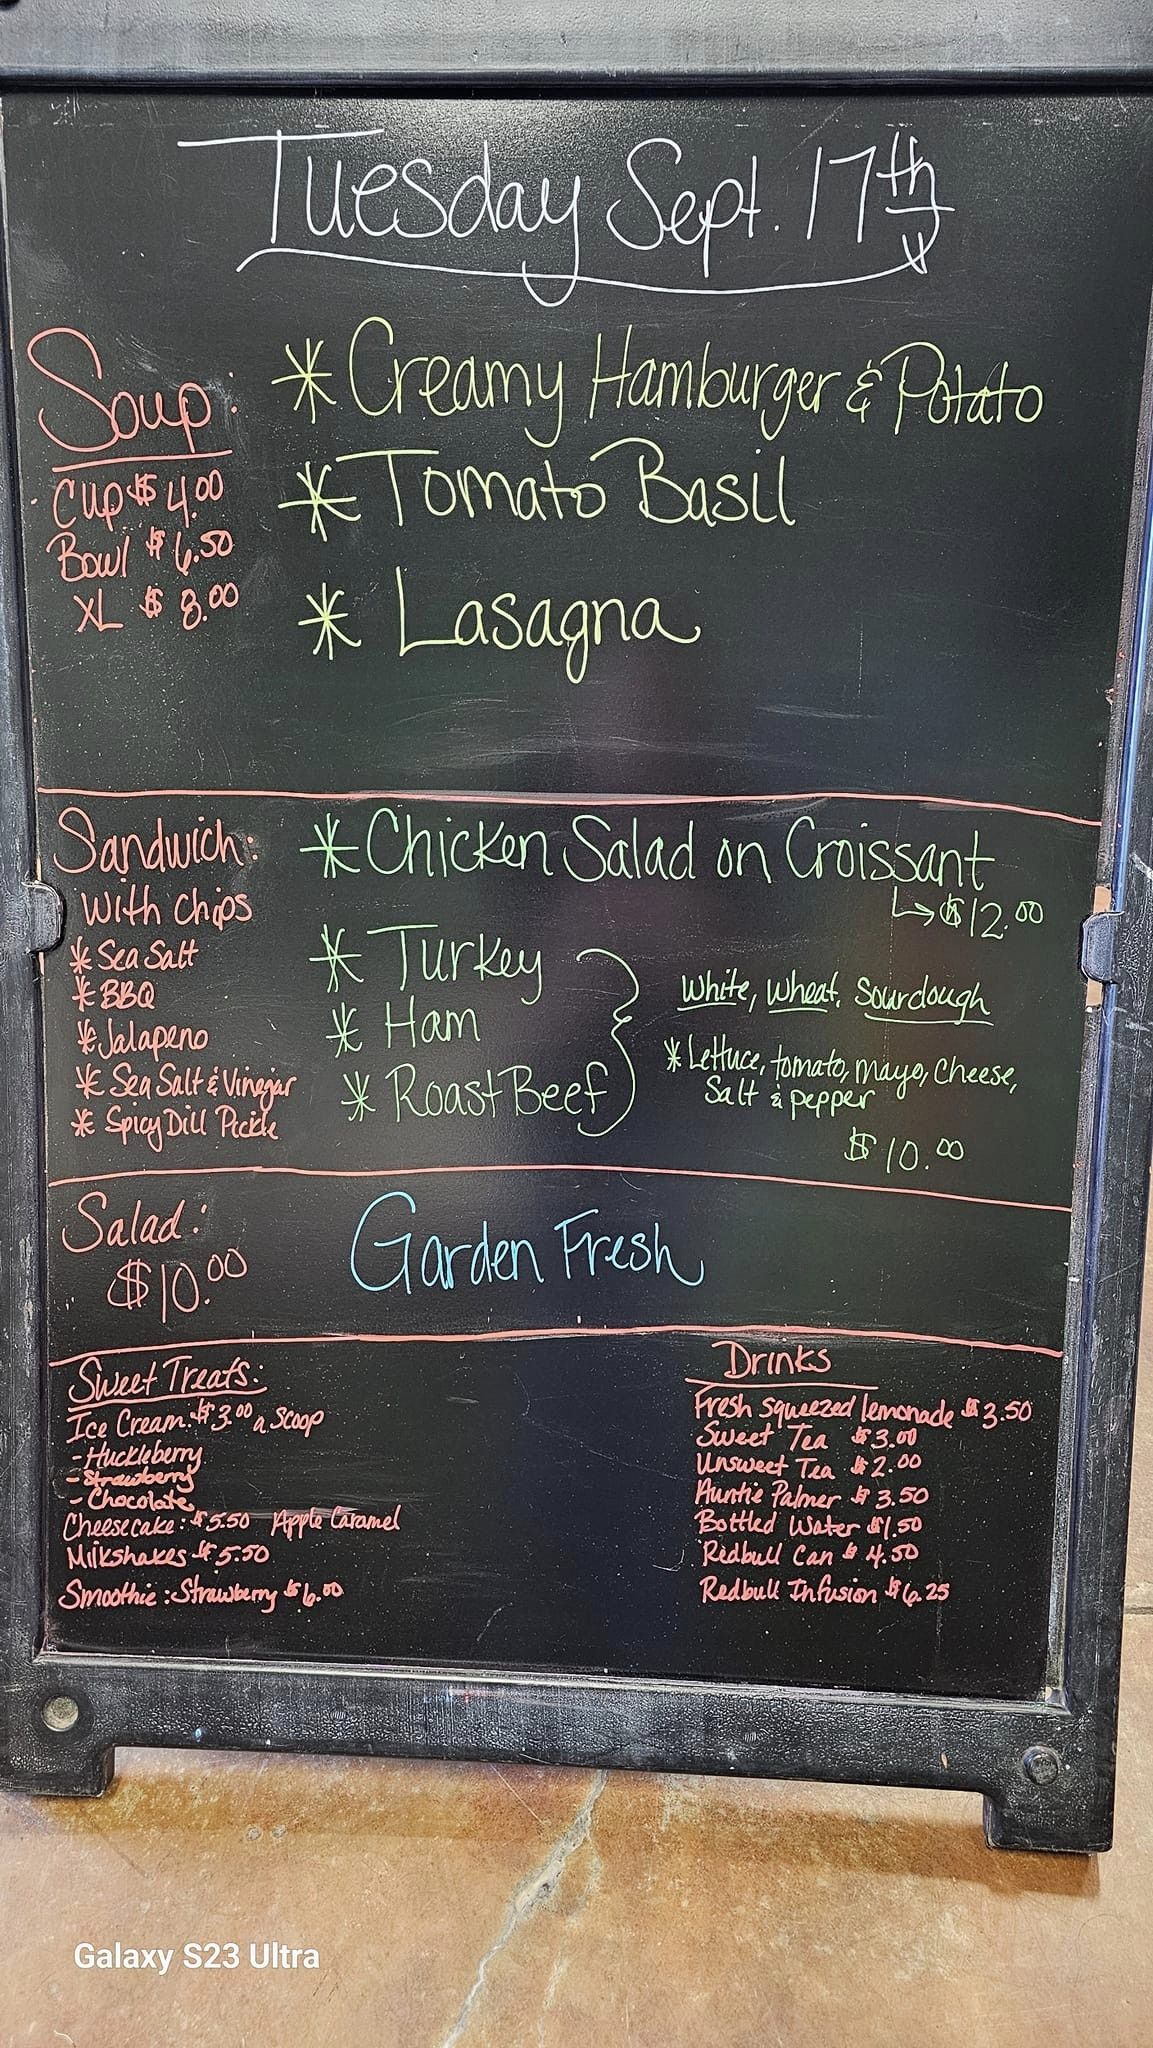 Tuesday Sept. 17th
Soup:
Cup $4.00
Bowl $6.50
XL $8.00
* Creamy Hamburger & Potato
* Tomato Basil
* Lasagna
Sandwich:
with chips
* Sea Salt
* BBQ
* Jalapeno
* Sea Salt & Vinegar
* Spicy Dill Pickle
* Chicken Salad on Croissant
↳ $12.00
* Turkey
* Ham
* Roast Beef
White, Wheat, Sourdough
* Lettuce, tomato, mayo, cheese,
Salt & pepper
$10.00
Salad:
$10.00
Garden Fresh
Sweet Treats:
Ice Cream: $3.00 a scoop
- Huckleberry
- Strawberry
- Chocolate
Cheesecake: $5.50 Apple Caramel
Milkshakes $5.50
Smoothie: Strawberry $6.00
Drinks
Fresh squeezed lemonade $3.50
Sweet Tea $3.00
Unsweet Tea $2.00
Auntie Palmer $3.50
Bottled Water $1.50
Redbull Can $4.50
Redbull Infusion $6.25
Galaxy S23 Ultra